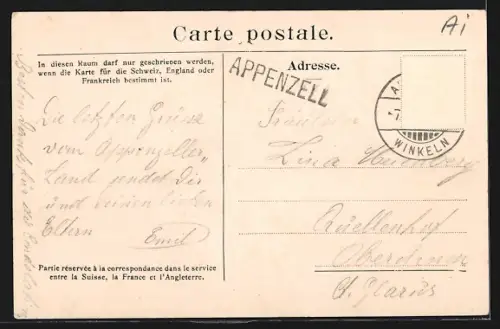 Carte postale.
Ai
In diesen Raum darf nur geschrieben werden,
wenn die Karte für die Schweiz, England oder
Frankreich bestimmt ist.
Adresse.
APPENZELL
WINKELN
Die letzten Grüsse
vom Appenzeller
Land sendet Dir
und deinen lieben
Eltern Emil
Fräulein
Lina
Quellenhof
Oberurnen
Ct. Glarus
Partie réservée à la correspondance dans le service
entre la Suisse, la France et l'Angleterre.